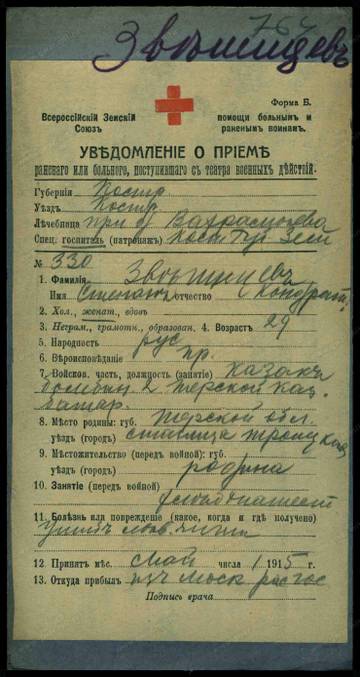 764
Звѣшищевъ
Всероссійскій Земскій Союзъ
Форма Б.
помощи больнымъ и раненымъ воинамъ.
УВѢДОМЛЕНІЕ О ПРІЕМѢ
раненаго или больного, поступившаго съ театра военныхъ дѣйствій.
Губернія Костр.
Уѣздъ Костр.
Лѣчебница при ф
Спец. госпиталь (патронажъ) Кост Губ Земс
№ 330
1. Фамилія
Имя Степанъ отчество Кондрат.
2. Хол., женат., вдовъ
3. Неграм., грамотн., образован. 4. Возрастъ 29
5. Народность рус
6. Вѣроисповѣданіе пр.
7. Войсков. часть, должность (занятіе) казакъ
2 Терской каз.
батар.
8. Мѣсто родины: губ. Терской обл.
уѣздъ (городъ) станица Троицкая
9. Мѣстожительство (передъ войной): губ.
уѣздъ (городъ) родина
10. Занятіе (передъ войной)
11. Болѣзнь или поврежденіе (какое, когда и гдѣ получено)
Ушибъ лѣв.
12. Принятъ мѣс. Май числа 1 1915 г.
13. Откуда прибылъ изъ Моск
Подпись врача